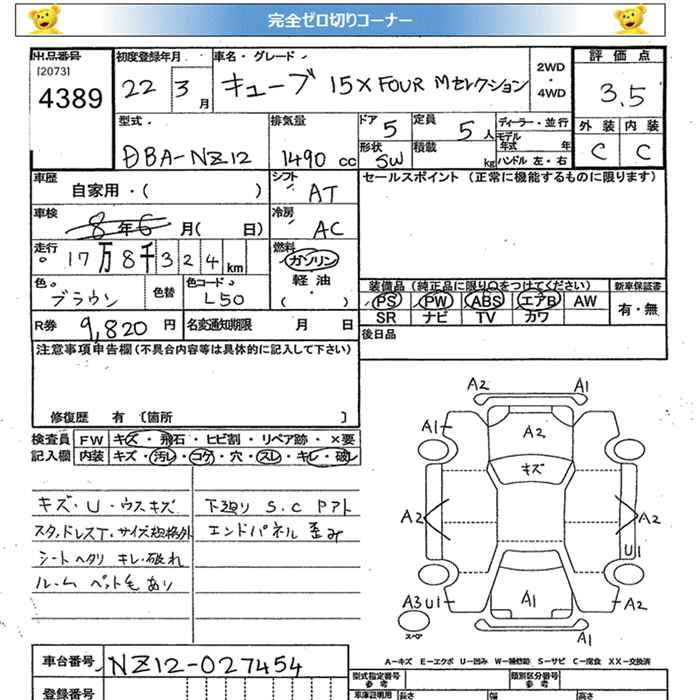 完全ゼロ切りコーナー
出品番号 初度登録年月 車名・グレード 評価点
[2073]
4389
22 3月 キューブ 15X FOUR Mセレクション 2WD・4WD 3.5
型式 排気量 ドア 5 定員 5人 ディーラー・並行 外装 内装
モデル年式 年
DBA-NZ12 1490cc 形状 SW 積載 kg ハンドル 左・右 C C
車歴 自家用・( ) シフト AT セールスポイント (正常に機能するものに限ります)
車検 8年6月( 日) 冷房 AC
走行 17万8千324km 燃料 ガソリン
軽油
( ・ )
色 ブラウン 色替 色コード L50
装備品 (純正品に限り○をつけてください) 新車保証書
PS PW ABS エアB AW 有・無
SR ナビ TV カワ
R券 9,820円 名変通知期限 月 日 後日品
注意事項申告欄(不具合内容等は具体的に記入して下さい)
修復歴 有 〔箇所 〕
検査員 FW キズ・飛石・ヒビ割・リペア跡・×要
記入欄 内装 キズ・汚レ・コゲ・穴・スレ・キレ・破レ
キズ・U・ウスキズ 下廻り S.C Pアト
スタッドレスT・サイズ規格外 エンドパネル 歪み
シートヘタリ キレ・破れ
ルーム ペット毛 あり
A2 A1
A1 A2
キズ
A2 A2
U1
A3 U1 A1 A2
スペア A1
A-キズ E-エクボ U-凹み W-補修跡 S-サビ C-腐食 XX-交換済
車台番号 NZ12-027454
型式指定番号 参考 類別区分番号 参考
登録番号 車庫証明用 長さ 幅 高さ